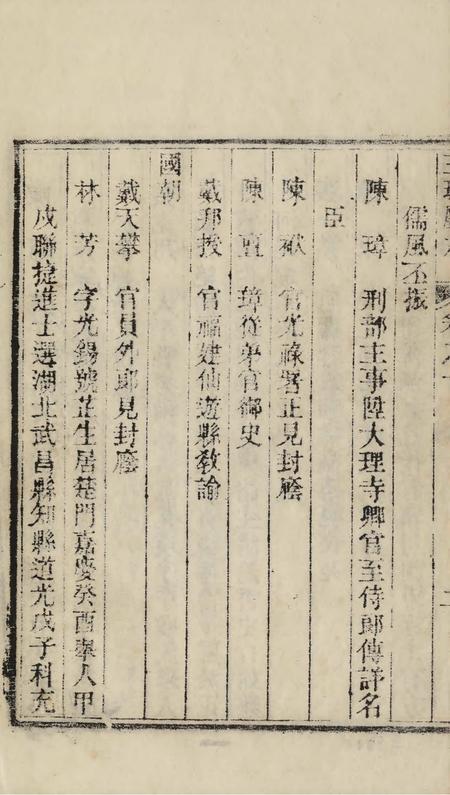 儒風丕振
陳璋 刑部主事陞大理寺卿官至侍郎傳詳名
臣
陳 官光祿署正見封廕
陳 璋從弟官御史
戴邦 官福建仙遊縣敎諭
國朝
戴天攀 官員外郎見封廕
林芳 字光錫號芷生居楚門嘉慶癸酉舉人甲
戌聯捷進士選湖北武昌縣知縣道光戊子科充